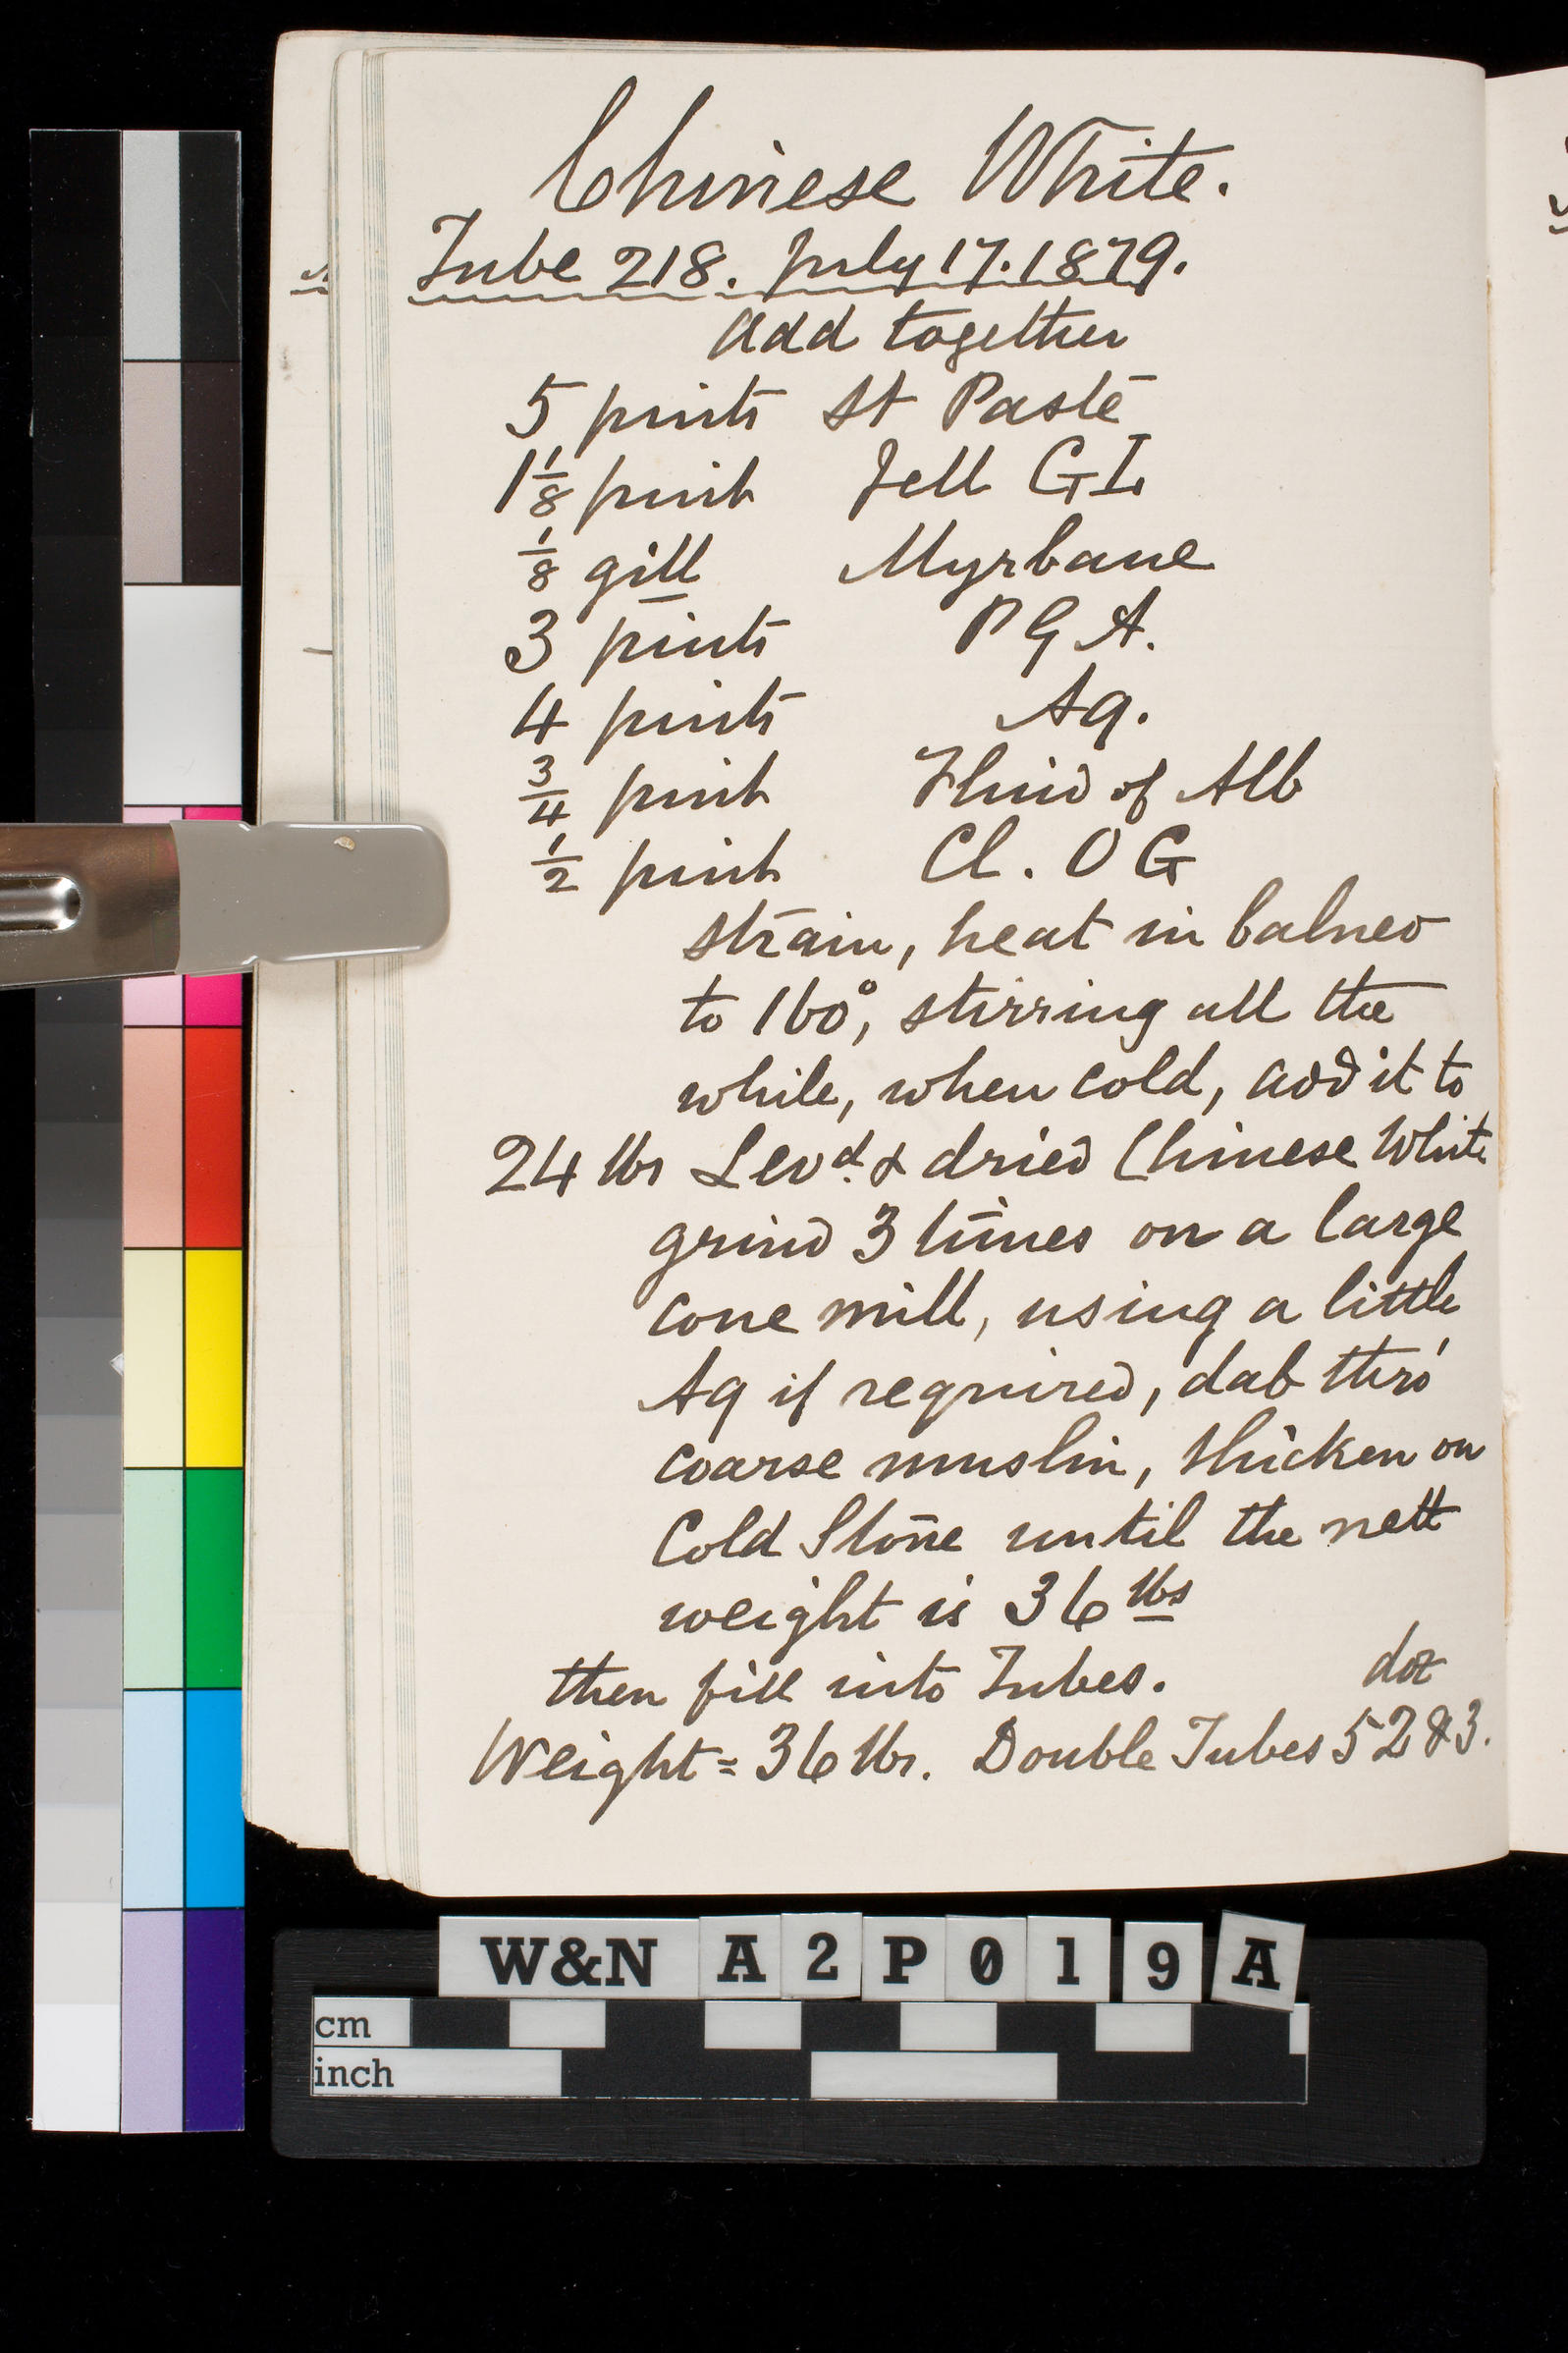 Chinese White.
Tube 218. July 17. 1879.
add together
5 pints St Paste
1 1/8 pint Jell G I.
1/8 gill Myrbane
3 pints P G A.
4 pints Aq.
3/4 pint Fluid of Alb
1/2 pint Cl. O G
strain, heat in balneo
to 160°, stirring all the
while, when cold, add it to
24 lbs Levd. & dried Chinese White
grind 3 times on a large
cone mill, using a little
Aq if required, dab thro'
coarse muslin, thicken on
Cold Stone until the nett
weight is 36 lbs
then fill into Tubes. doz
Weight = 36 lbs. Double Tubes 52 & 3.
W&N A2P019A
cm
inch